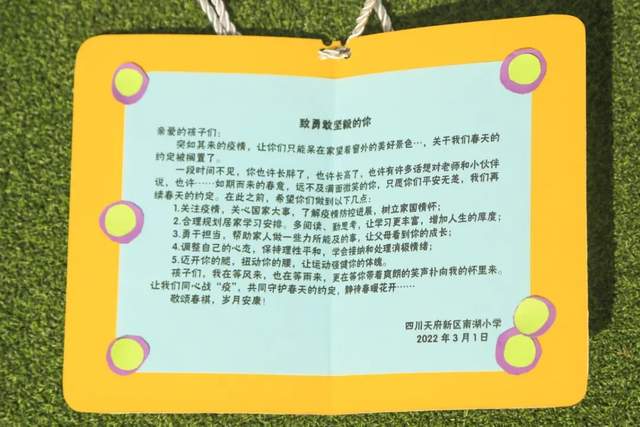 致勇敢坚毅的你
亲爱的孩子们：
突如其来的疫情，让你们只能呆在家望着窗外的美好景色…，关于我们春天的
约定被搁置了。
一段时间不见，你也许长胖了，也许长高了，也许有许多话想对老师和小伙伴
说，也许……如期而来的春意，远不及满面微笑的你，只愿你们平安无恙，我们再
续春天的约定。在此之前，希望你们做到以下几点：
1.关注疫情，关心国家大事，了解疫情防控进展，树立家国情怀；
2.合理规划居家学习安排。多阅读、勤思考，让学习更丰富，增加人生的厚度；
3.勇于担当，帮助家人做一些力所能及的事，让父母看到你的成长；
4.调整自己的心态，保持理性平和，学会接纳和处理消极情绪；
5.迈开你的腿，扭动你的腰，让运动强健你的体魄。
孩子们，我在等风来，也在等雨来，更在等你带着爽朗的笑声扑向我的怀里来。
让我们同心战“疫”，共同守护春天的约定，静待春暖花开……
敬颂春祺，岁月安康！
四川天府新区南湖小学
2022年3月1日